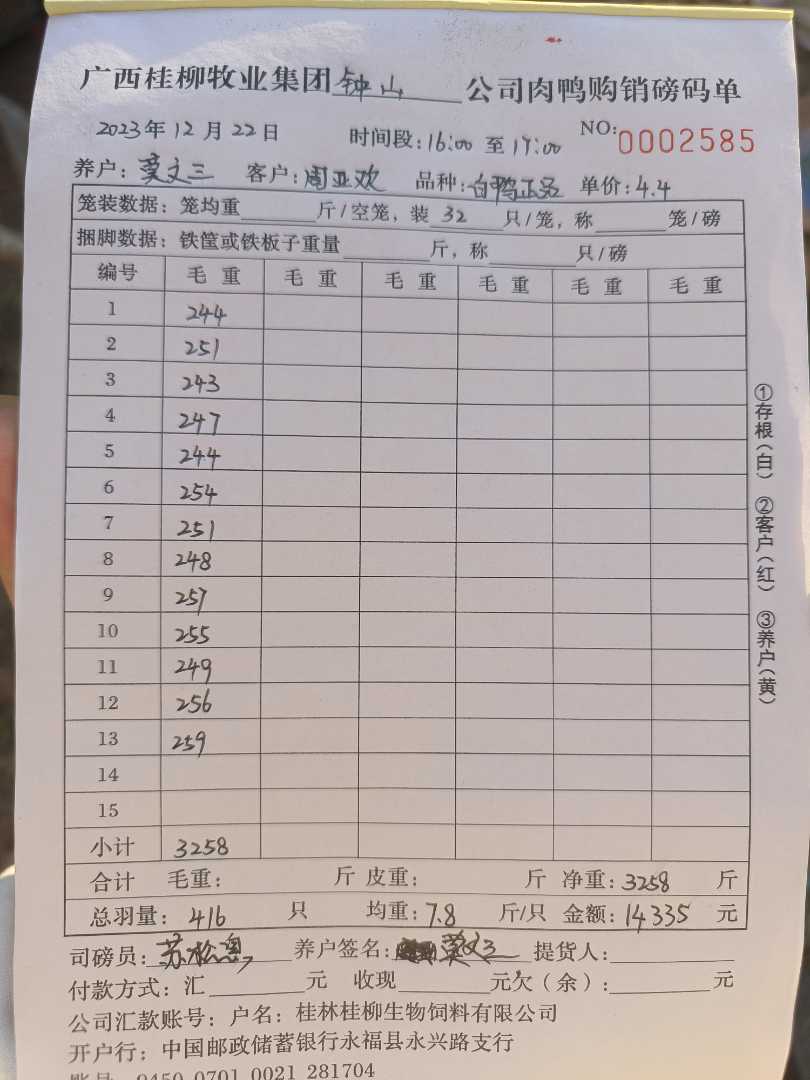 广西桂柳牧业集团钟山公司肉鸭购销磅码单
2023年12月22日 时间段:16:00至17:00 NO:0002585
养户:莫文三 客户:周亚欢 品种:白鸭正品 单价:4.4
笼装数据:笼均重 斤/空笼,装32只/笼,称 笼/磅
捆脚数据:铁筐或铁板子重量 斤,称 只/磅
编号 毛重 毛重 毛重 毛重 毛重 毛重
1 244
2 251
3 243
4 247
5 244
6 254
7 251
8 248
9 257
10 255
11 249
12 256
13 259
14
15
小计 3258
合计 毛重: 斤 皮重: 斤 净重:3258 斤
总羽量:416 只 均重:7.8 斤/只 金额:14335 元
司磅员:苏松 养户签名:莫文三 提货人:
付款方式:汇 元 收现 元欠(余): 元
公司汇款账号:户名:桂林桂柳生物饲料有限公司
开户行:中国邮政储蓄银行永福县永兴路支行
账号 9450 0701 0021 281704
①存根(白) ②客户(红) ③养户(黄)